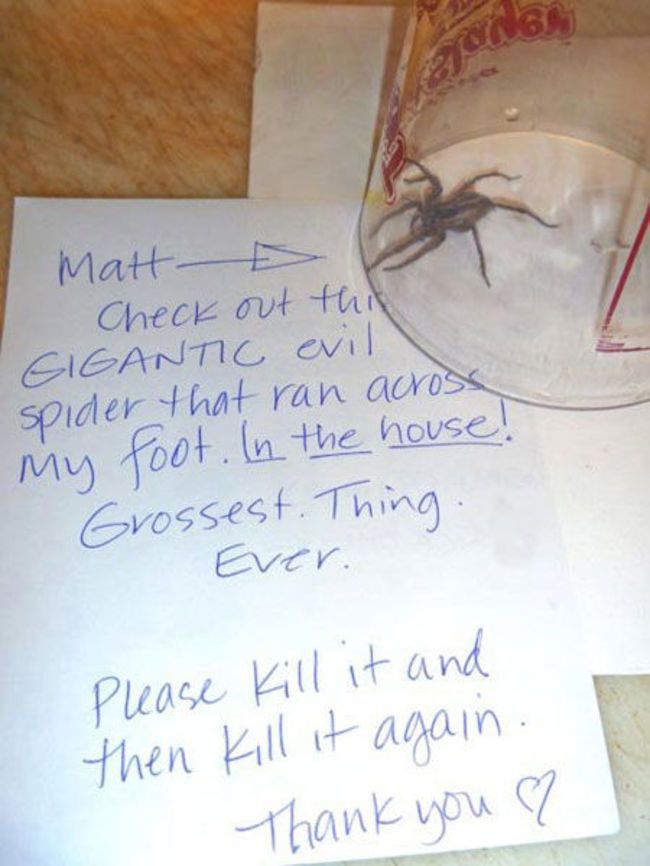 Matt
Check out thi
GIGANTIC evil
spider that ran across
My foot. In the house!
Grossest. Thing.
Ever.
Please Kill it and
then Kill it again.
Thank you ♡